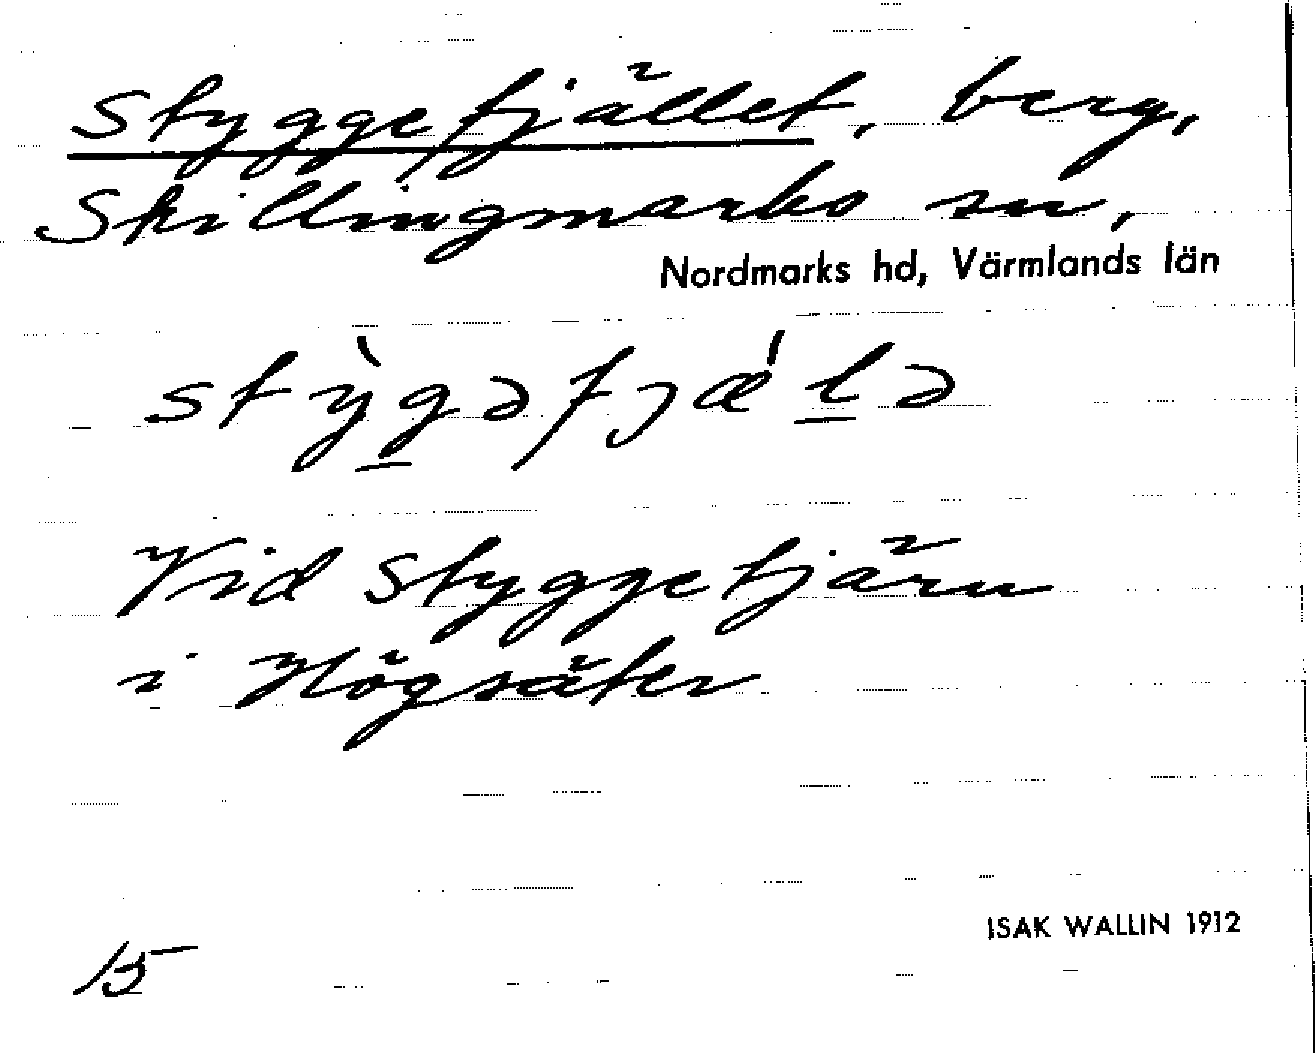 Styggefjället, berg,
Skillingmarks sn,
Nordmarks hd, Värmlands län
stỳg̲əfjǽl̲ə
Vid Styggetjärn
i Högsäter
15
ISAK WALLIN 1912